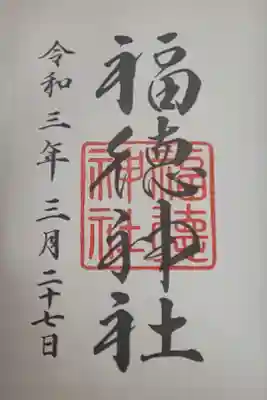 福徳神社
令和三年三月二十七日
福徳
神社